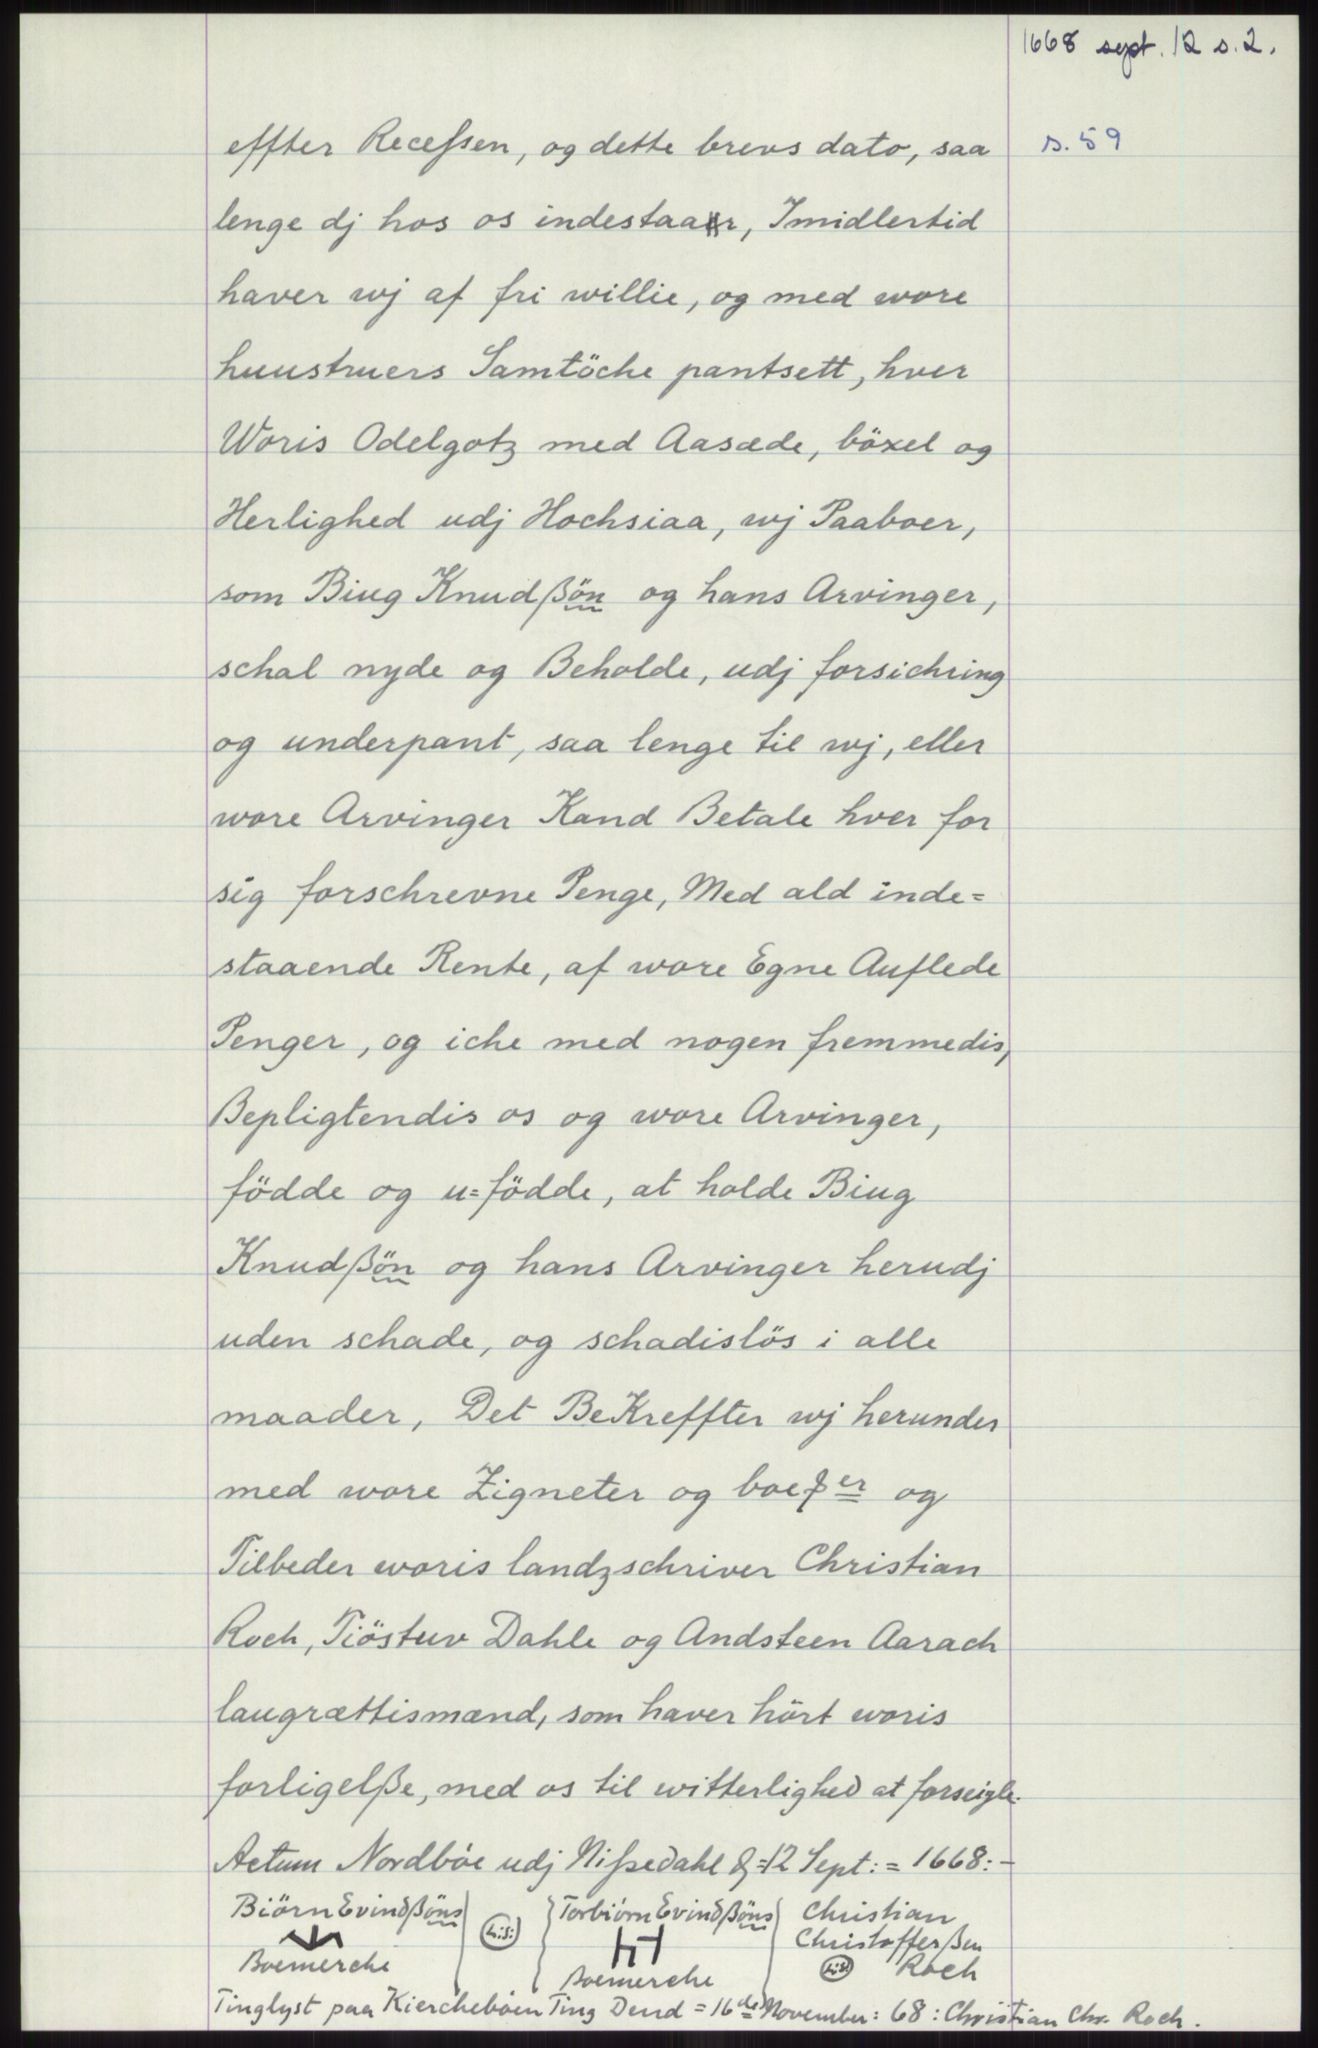 1668 sept. 12 s. 2.
s. 59
effter Recessen, og dette brevs dato, saa
lenge dj hos os indestaar, Imidlertid
haver wj af fri willie, og med wore
huustruers Samtöche pantsett, hver
Woris Odelgotz med Aasæde, böxel og
Herlighed udj Hochsiaa, wj Paaboer,
som Biug Knudßön og hans Arvinger,
schal nyde og Beholde, udj forsichring
og underpant, saa lenge til wj, eller
wore Arvinger Kand Betale hver for
sig forschrevne Penge, Med ald inde=
staaende Rente, af wore Egne Auflede
Penger, og iche med nogen fremmedis,
Bepligtendis os og wore Arvinger,
födde og u=födde, at holde Biug
Knudßön og hans Arvinger herudj
uden schade, og schadislös i alle
maader, Det BeKreffter wj herunder
med wore Zigneter og og
Tilbeder woris landzschriver Christian
Roch, Tiöstuv Dahle og Andsteen Aarach
laugrættismænd, som haver hört woris
forligelße, med os til witterlighed at forseigle.
Actum Nordböe udj Nissedahl d=12 Sept:= 1668:-
Biörn Evindßöns (L:S:) Torbiörn Evindßöns Christian
Christofferßen
Boemerche Boemerche (L:S:) Roch
Tinglyst paa Kiercheböen Ting Dend = 16de November: 68: Christian Chr. Roch.